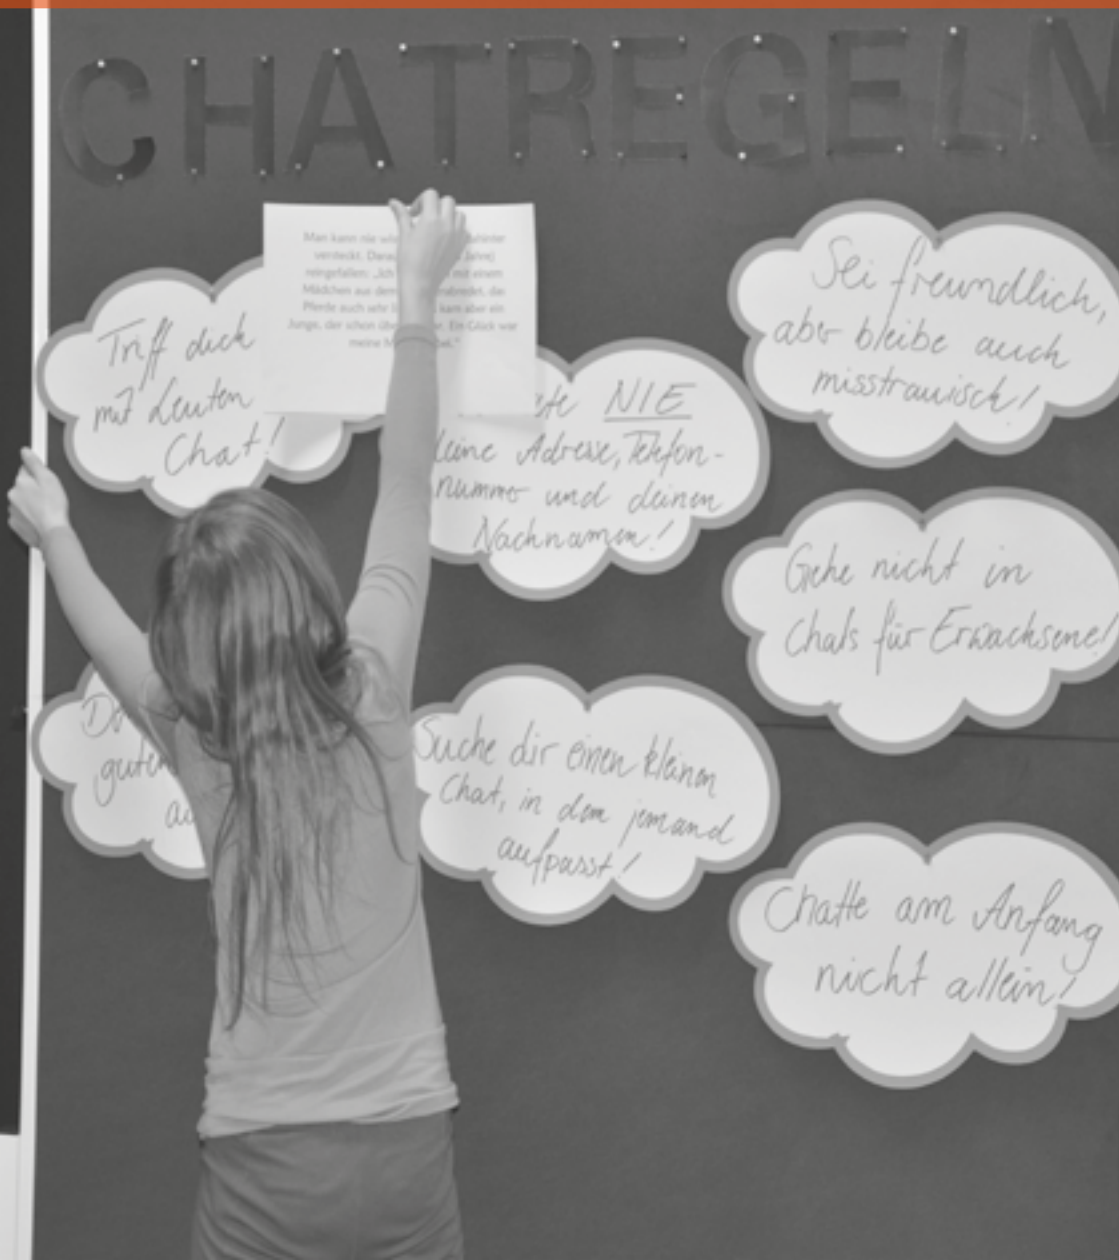 CHATREGELN
Man kann nie
versteckt.
reingefallen: „Ich mit einem
Mädchen aus dem das
Pferde auch sehr kam aber ein
Junge, der schon Ein Glück war
meine
Triff dich
mit Leuten
Chat!
NIE
Adresse, Telefon-
nummer und deinen
Nachnamen!
Sei freundlich,
aber bleibe auch
misstrauisch!
Gehe nicht in
Chats für Erwachsene!
guten
Suche dir einen kleinen
Chat, in dem jemand
aufpasst!
Chatte am Anfang
nicht allein!